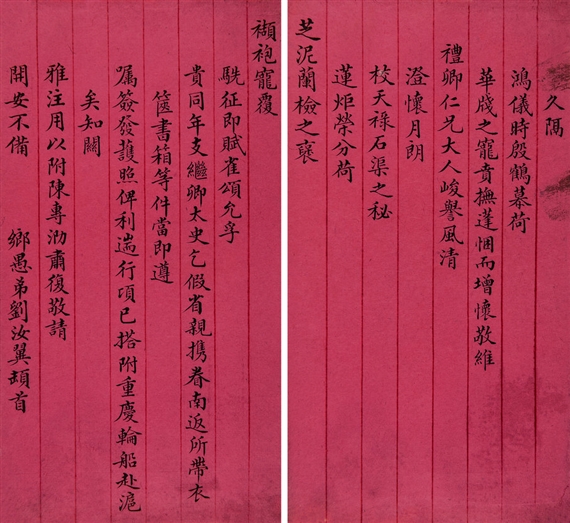 久隔
鴻儀時殷鶴慕荷
華牋之寵賁撫蓬悃而增懷敬維
禮卿仁兄大人峻譽風清
澄懷月朗
校天祿石渠之秘
蓮炬榮分荷
芝泥蘭檢之褒
襭袍寵覆
駪征即賦雀頌允孚
貴同年支繼卿太史乞假省親攜眷南返所帶衣
篋書箱等件當即遵
囑簽發護照俾利遄行頃已搭附重慶輪船赴滬
矣知關
雅注用以附陳專泐肅復敬請
開安不備
鄉愚弟劉汝翼頓首